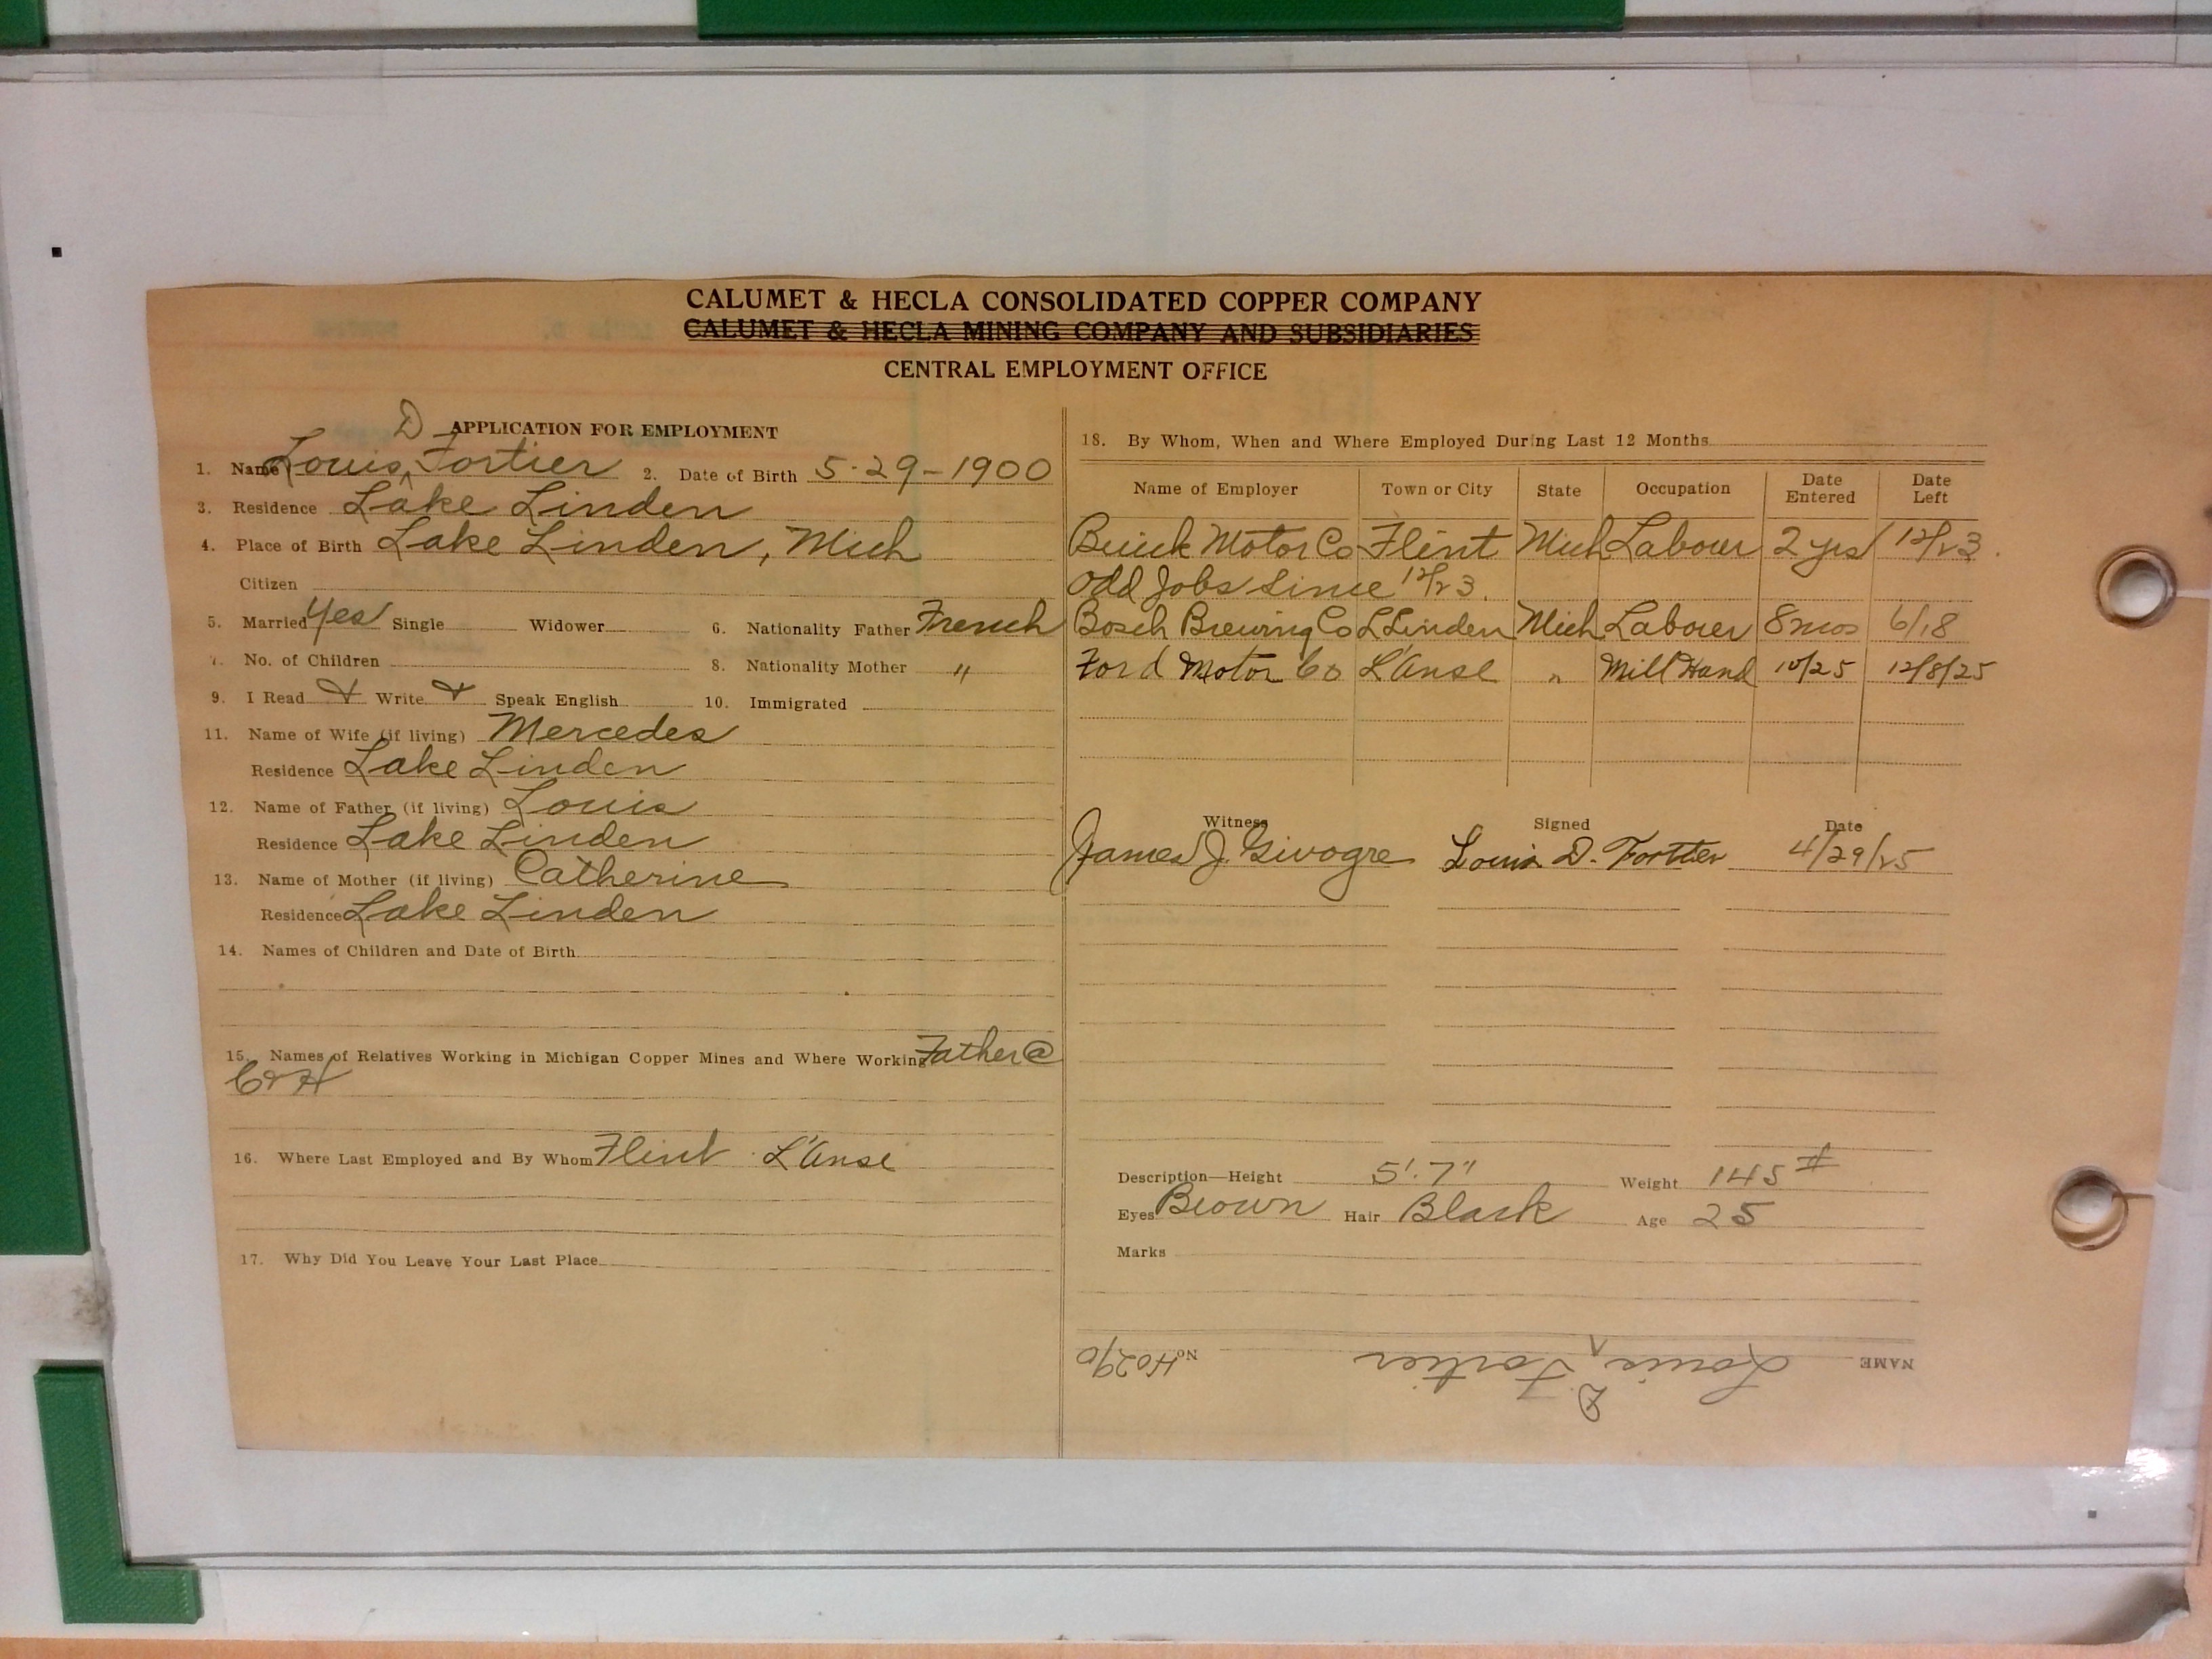 CALUMET & HECLA CONSOLIDATED COPPER COMPANY
CALUMET & HECLA MINING COMPANY AND SUBSIDIARIES
CENTRAL EMPLOYMENT OFFICE
APPLICATION FOR EMPLOYMENT
1. Name Louis D Fortier 2. Date of Birth 5-29-1900
3. Residence Lake Linden
4. Place of Birth Lake Linden, Mich
Citizen
5. Married Yes Single Widower 6. Nationality Father French
7. No. of Children 8. Nationality Mother "
9. I Read & Write & Speak English 10. Immigrated
11. Name of Wife (if living) Mercedes
Residence Lake Linden
12. Name of Father (if living) Louis
Residence Lake Linden
13. Name of Mother (if living) Catherine
Residence Lake Linden
14. Names of Children and Date of Birth
15. Names of Relatives Working in Michigan Copper Mines and Where Working Father @
C & H
16. Where Last Employed and By Whom Flint L'Anse
17. Why Did You Leave Your Last Place
18. By Whom, When and Where Employed During Last 12 Months
Name of Employer Town or City State Occupation Date Entered Date Left
Buick Motor Co Flint Mich Labourer 2 yrs 12/23
Odd Jobs Since 12/23.
Bosch Brewing Co L Linden Mich Labourer 8 mos 6/18
Ford Motor Co L'Anse " Mill Hand 10/25 12/8/25
Witness Signed Date
James J. Givogre Louis D. Fortier 4/29/25
Description—Height 5'.7" Weight 145#
Eyes Brown Hair Black Age 25
Marks
NAME Louis D Fortier No. H0290